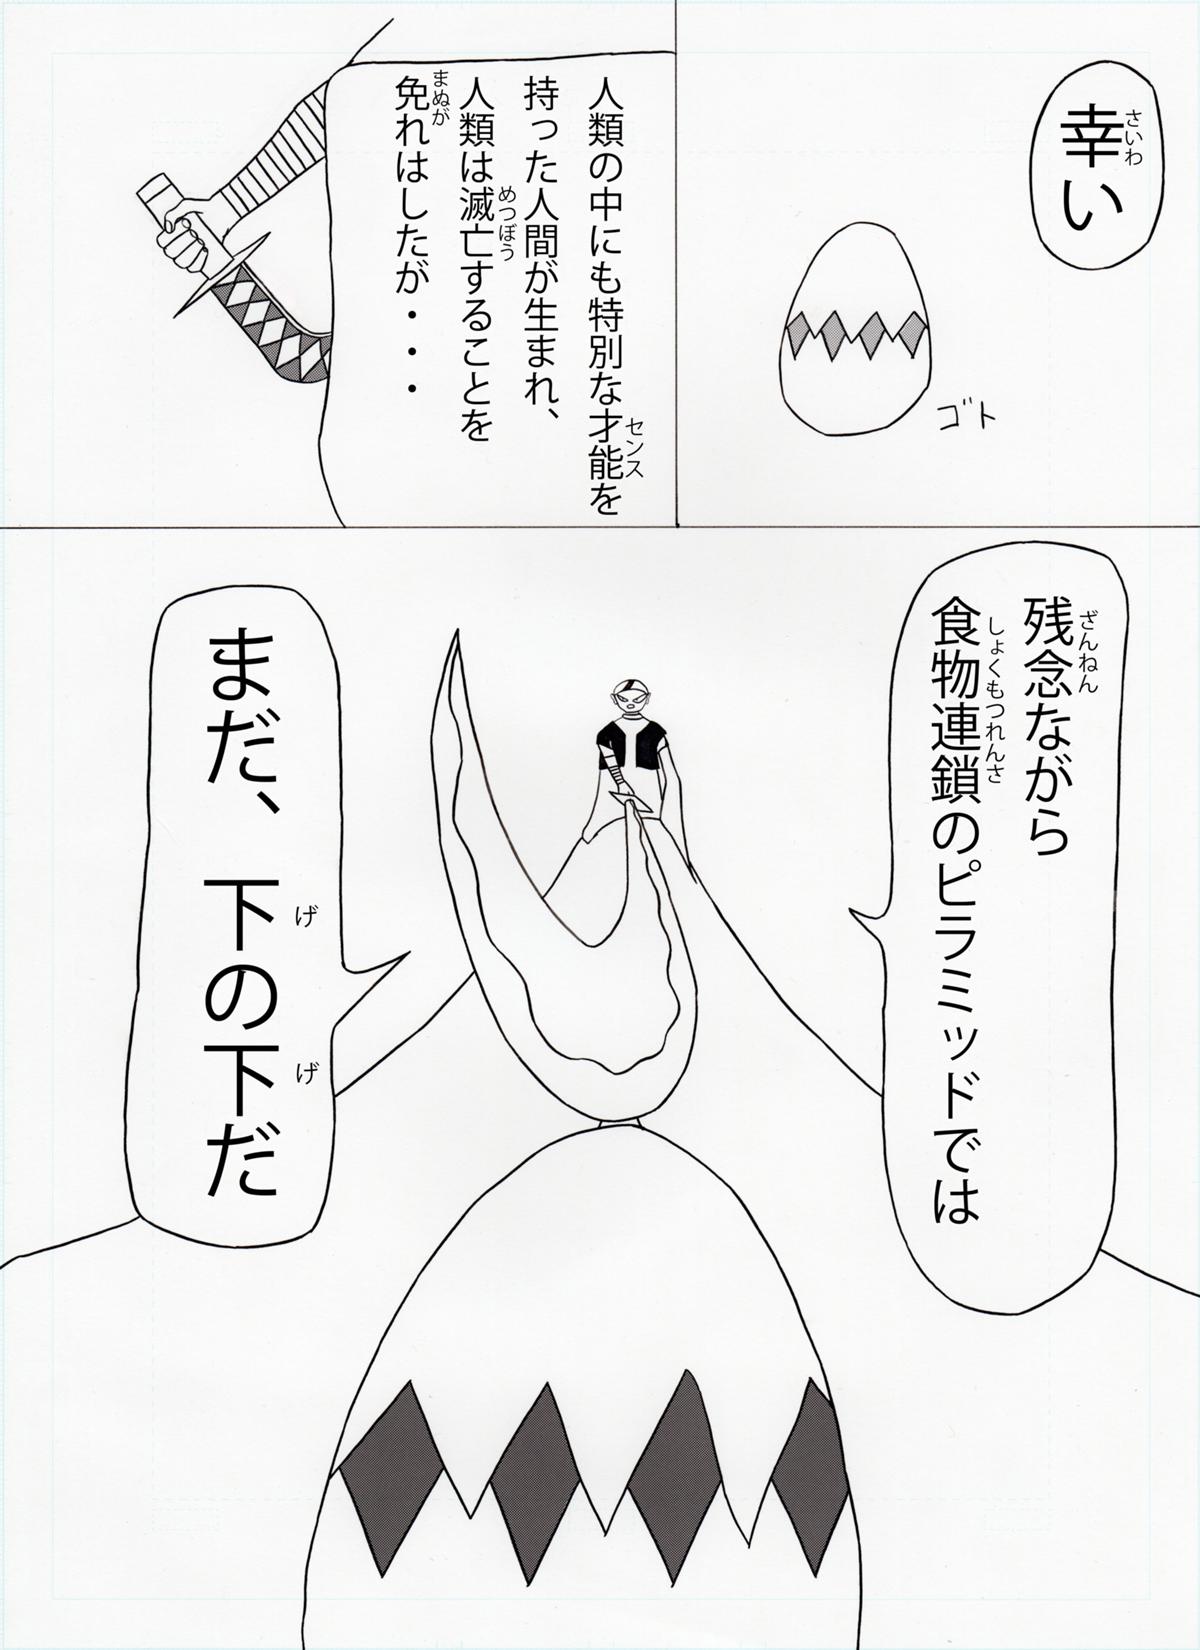 幸い
さいわ
ゴト
人類の中にも特別な才能を
センス
持った人間が生まれ、
人類は滅亡することを
めつぼう
免れはしたが・・・
まぬが
残念ながら
ざんねん
食物連鎖のピラミッドでは
しょくもつれんさ
まだ、下の下だ
げ
げ